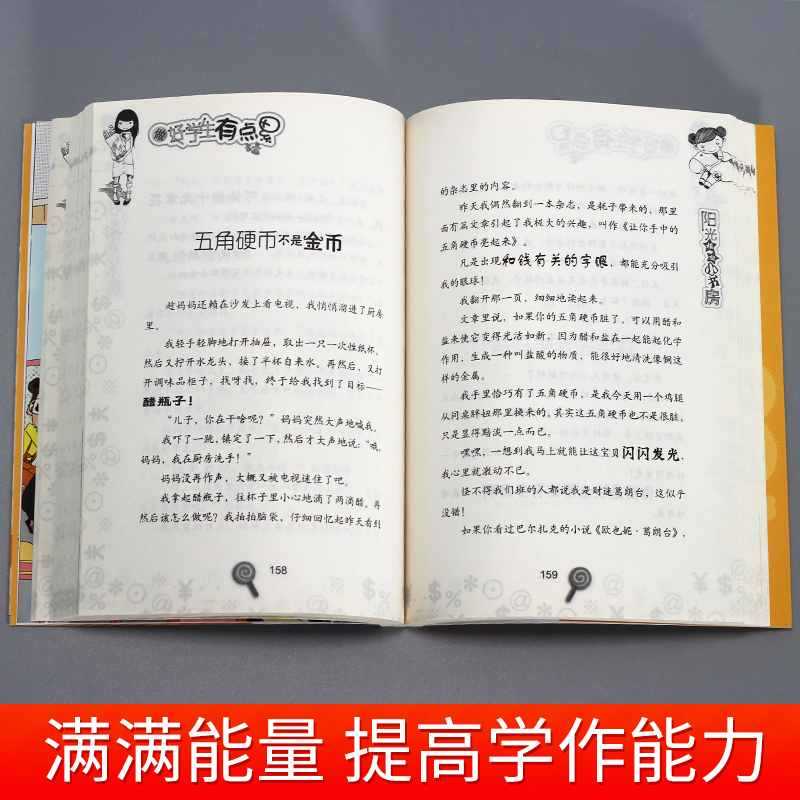 做好学生有点累
五角硬币不是金币
趁妈妈还赖在沙发上看电视，我悄悄溜进了厨房
里。
我轻手轻脚地打开抽屉，取出一只一次性纸杯，
然后又拧开水龙头，接了半杯自来水。再然后，又打
开调味品柜子，找呀找，终于给我找到了目标——
醋瓶子！
“儿子，你在干啥呢？”妈妈突然大声地喊我。
我吓了一跳，镇定了一下，然后才大声地说：“哦，
妈妈，我在厨房洗手！”
妈妈没再作声，大概又被电视迷住了吧。
我拿起醋瓶子，往杯子里小心地滴了两滴醋。再
然后该怎么做呢？我拍拍脑袋，仔细回忆起昨天看到
158
阳光姐姐小书房
的杂志里的内容。
昨天我偶然翻到一本杂志，是耗子带来的，那里
面有篇文章引起了我极大的兴趣，叫作《让你手中的
五角硬币亮起来》。
凡是出现和钱有关的字眼，都能充分吸引
我的眼球！
我翻开那一页，细细地读起来。
文章里说，如果你的五角硬币脏了，可以用醋和
盐来使它变得光洁如新，因为醋和盐在一起能起化学
作用，生成一种叫盐酸的物质，能很好地清洗像铜这
样的金属。
我手里恰巧有了五角硬币，是我今天用一个鸡腿
从同桌胖妞那里换来的。其实这五角硬币也不是很脏，
只是显得黯淡一点而已。
嘿嘿，一想到我马上就能让这宝贝闪闪发光，
我心里就激动不已。
怪不得我们班的人都说我是财迷葛朗台，这似乎
没错！
如果你看过巴尔扎克的小说《欧也妮·葛朗台》，
159
满满能量 提高学作能力